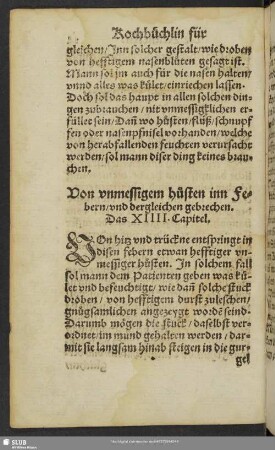 Kochbüchlin für
gleichen / Inn solcher gestalt / wie droben
von hefftigem nasenblüten gesagt ist.
Mann sol jm auch für die nasen halten /
vnnd alles was kület / einriechen lassen.
Doch sol das haupt in allen solchen din-
gen zubrauchen / nit vnmessigklichen er-
füllet sein / Dañ wo hüsten / flüß / schnupf
fen oder nasenpfnisel vorhanden / welche
von herabfallenden feuchten verursacht
werden / sol mann diser ding keines brau-
chen.
Von vnmessigem hüsten inn Fe-
bern / vnd dergleichen gebrechen.
Das XIIII. Capitel.
VOn hitz vnd trückne entspringt in
disen febern etwan hefftiger vn-
messiger hüsten. In solchem fall
sol mann dem Patienten geben was kü-
let vnd befeuchtigt / wie dañ solche stuck
droben / von hefftigem durst zuleschen /
gnügsamlichen angezeygt wordẽ seind.
Darumb mögen die stuck / daselbst ver-
ordnet / im mund gehalten werden / dar-
mit sie langsam hinab steigen in die gur-
gel
SLUB